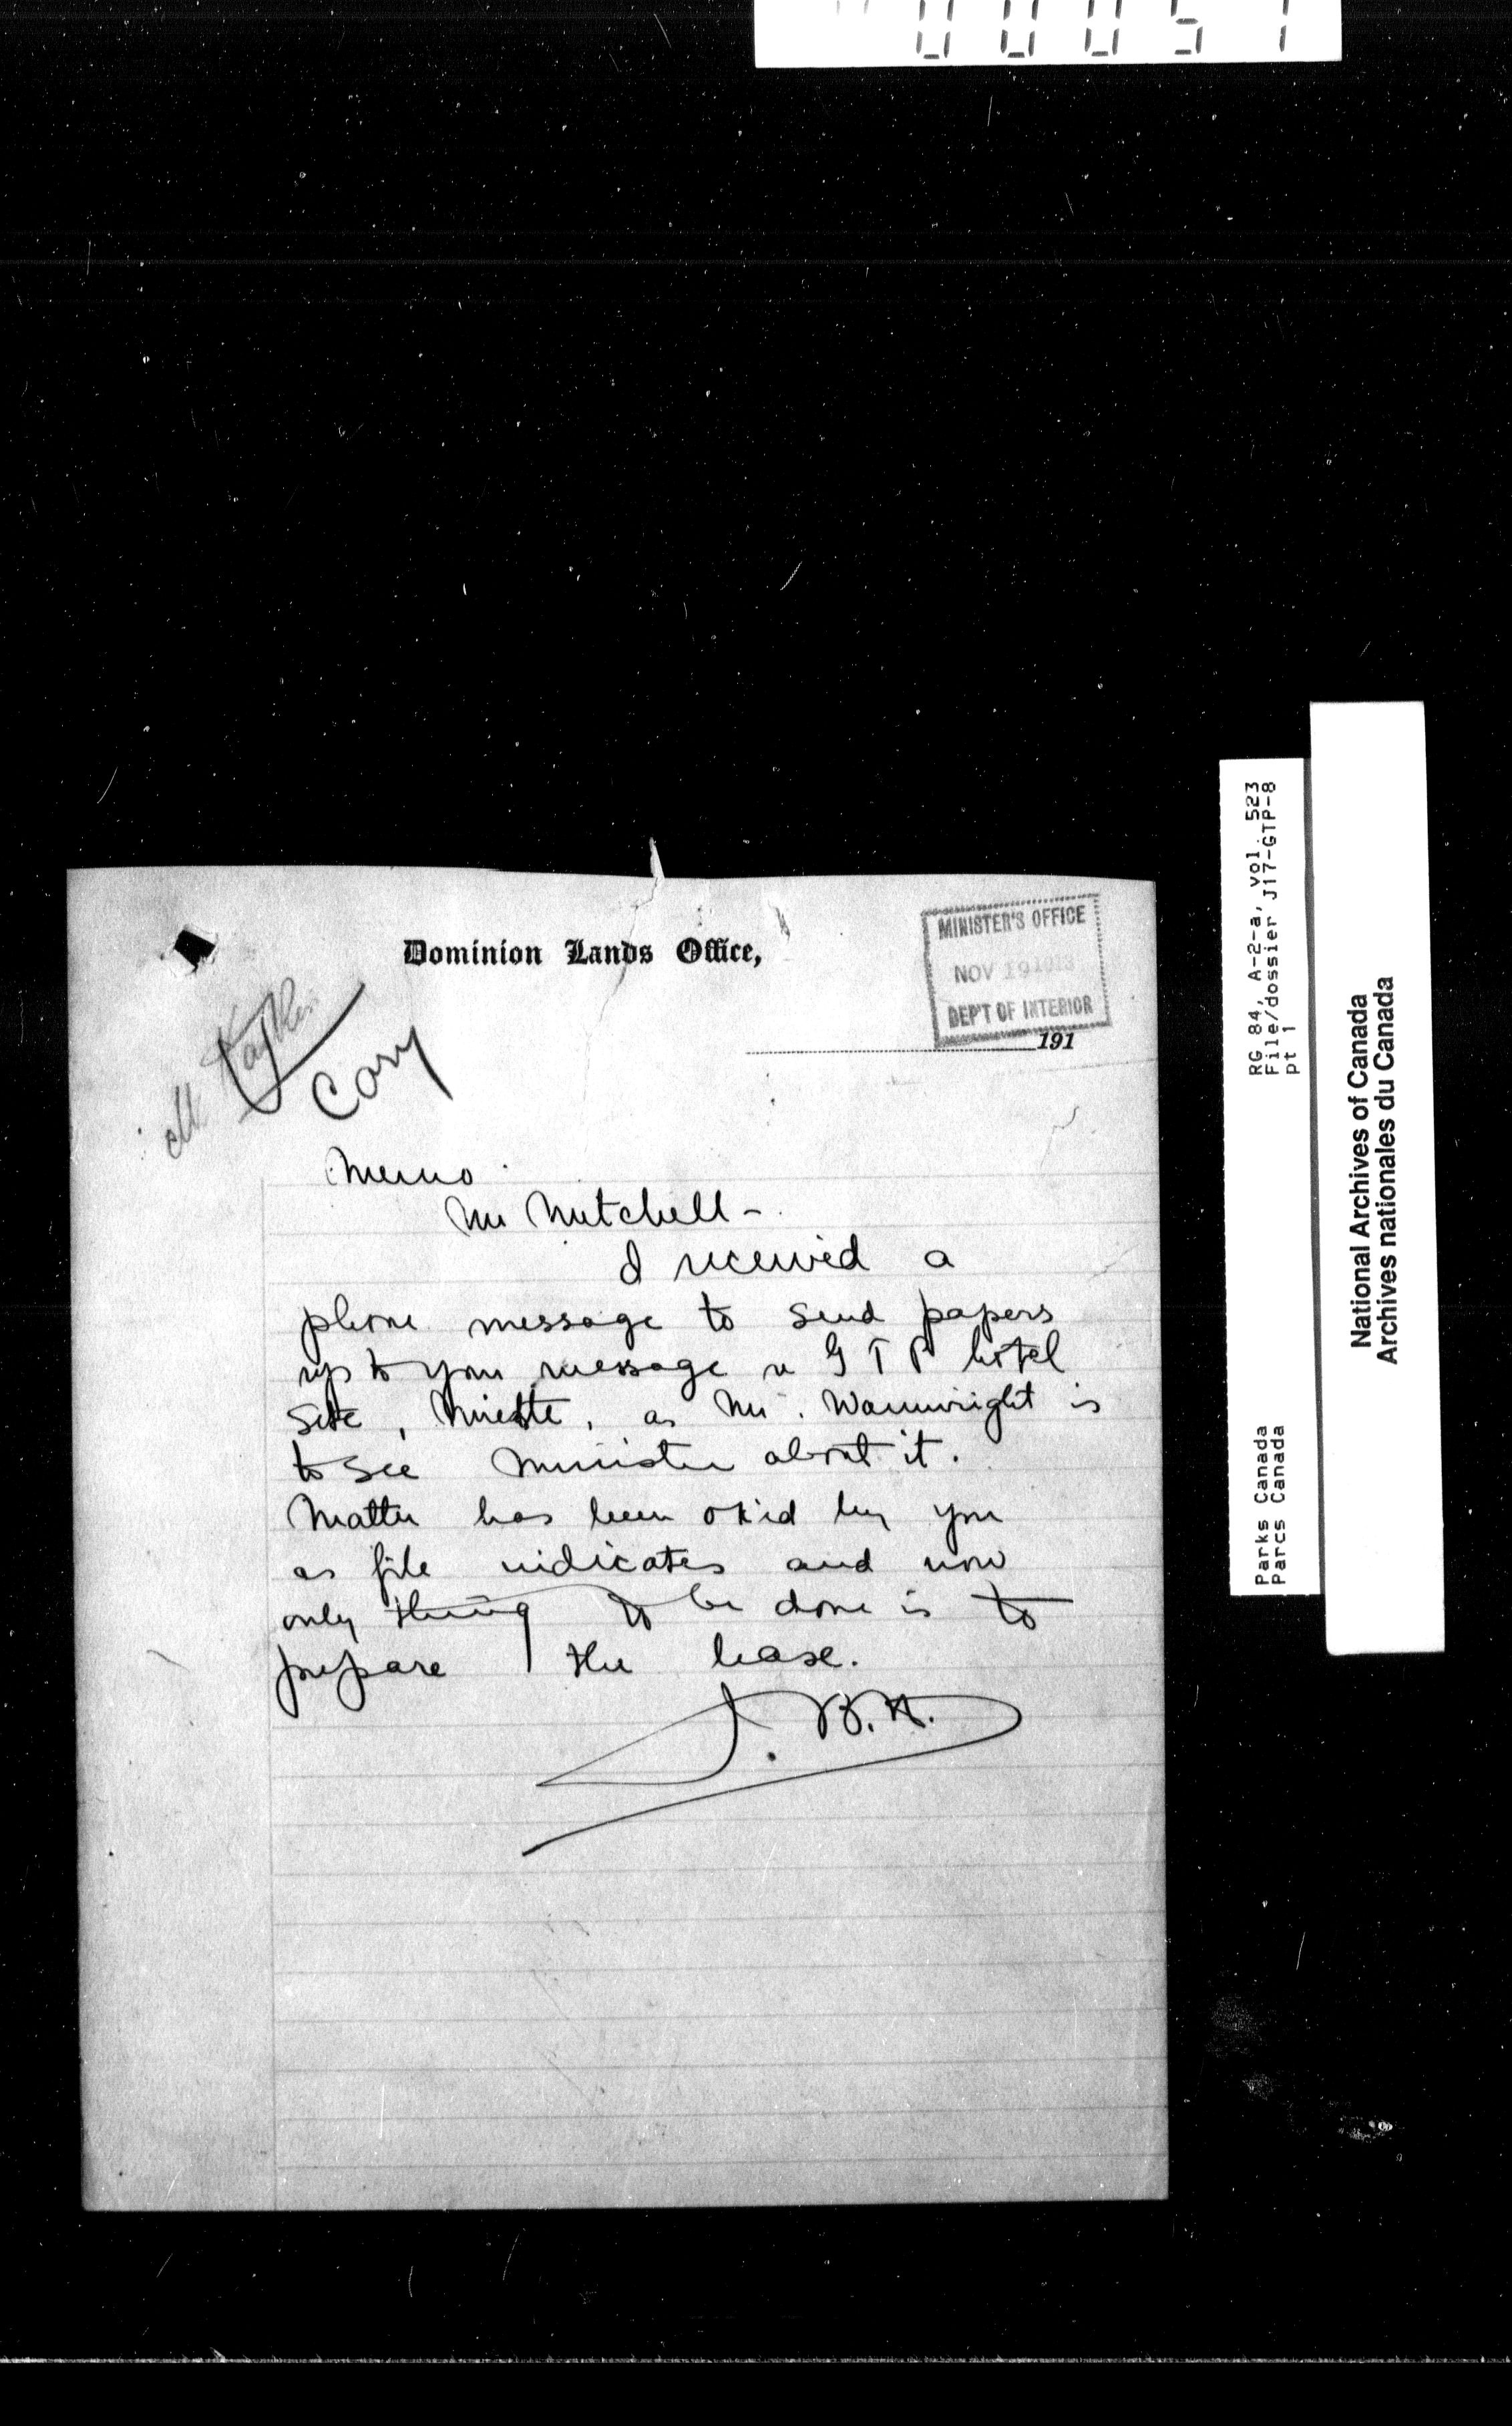 Dominion Lands Office,
MINISTER'S OFFICE
NOV 19 1913
DEP'T OF INTERIOR
191
Cory
Memo
Mr Mitchell -
I received a
phone message to send papers
up to your message re G T P hotel
site, Miette, as Mr. Wainwright is
to see Minister about it.
Matter has been OK'id by you
as file indicates and now
only thing to be done is to
prepare the lease.
J. B. H.
RG 84, A-2-a, vol. 523
File/dossier J17-GTP-8
pt 1
Parks Canada
Parcs Canada
National Archives of Canada
Archives nationales du Canada